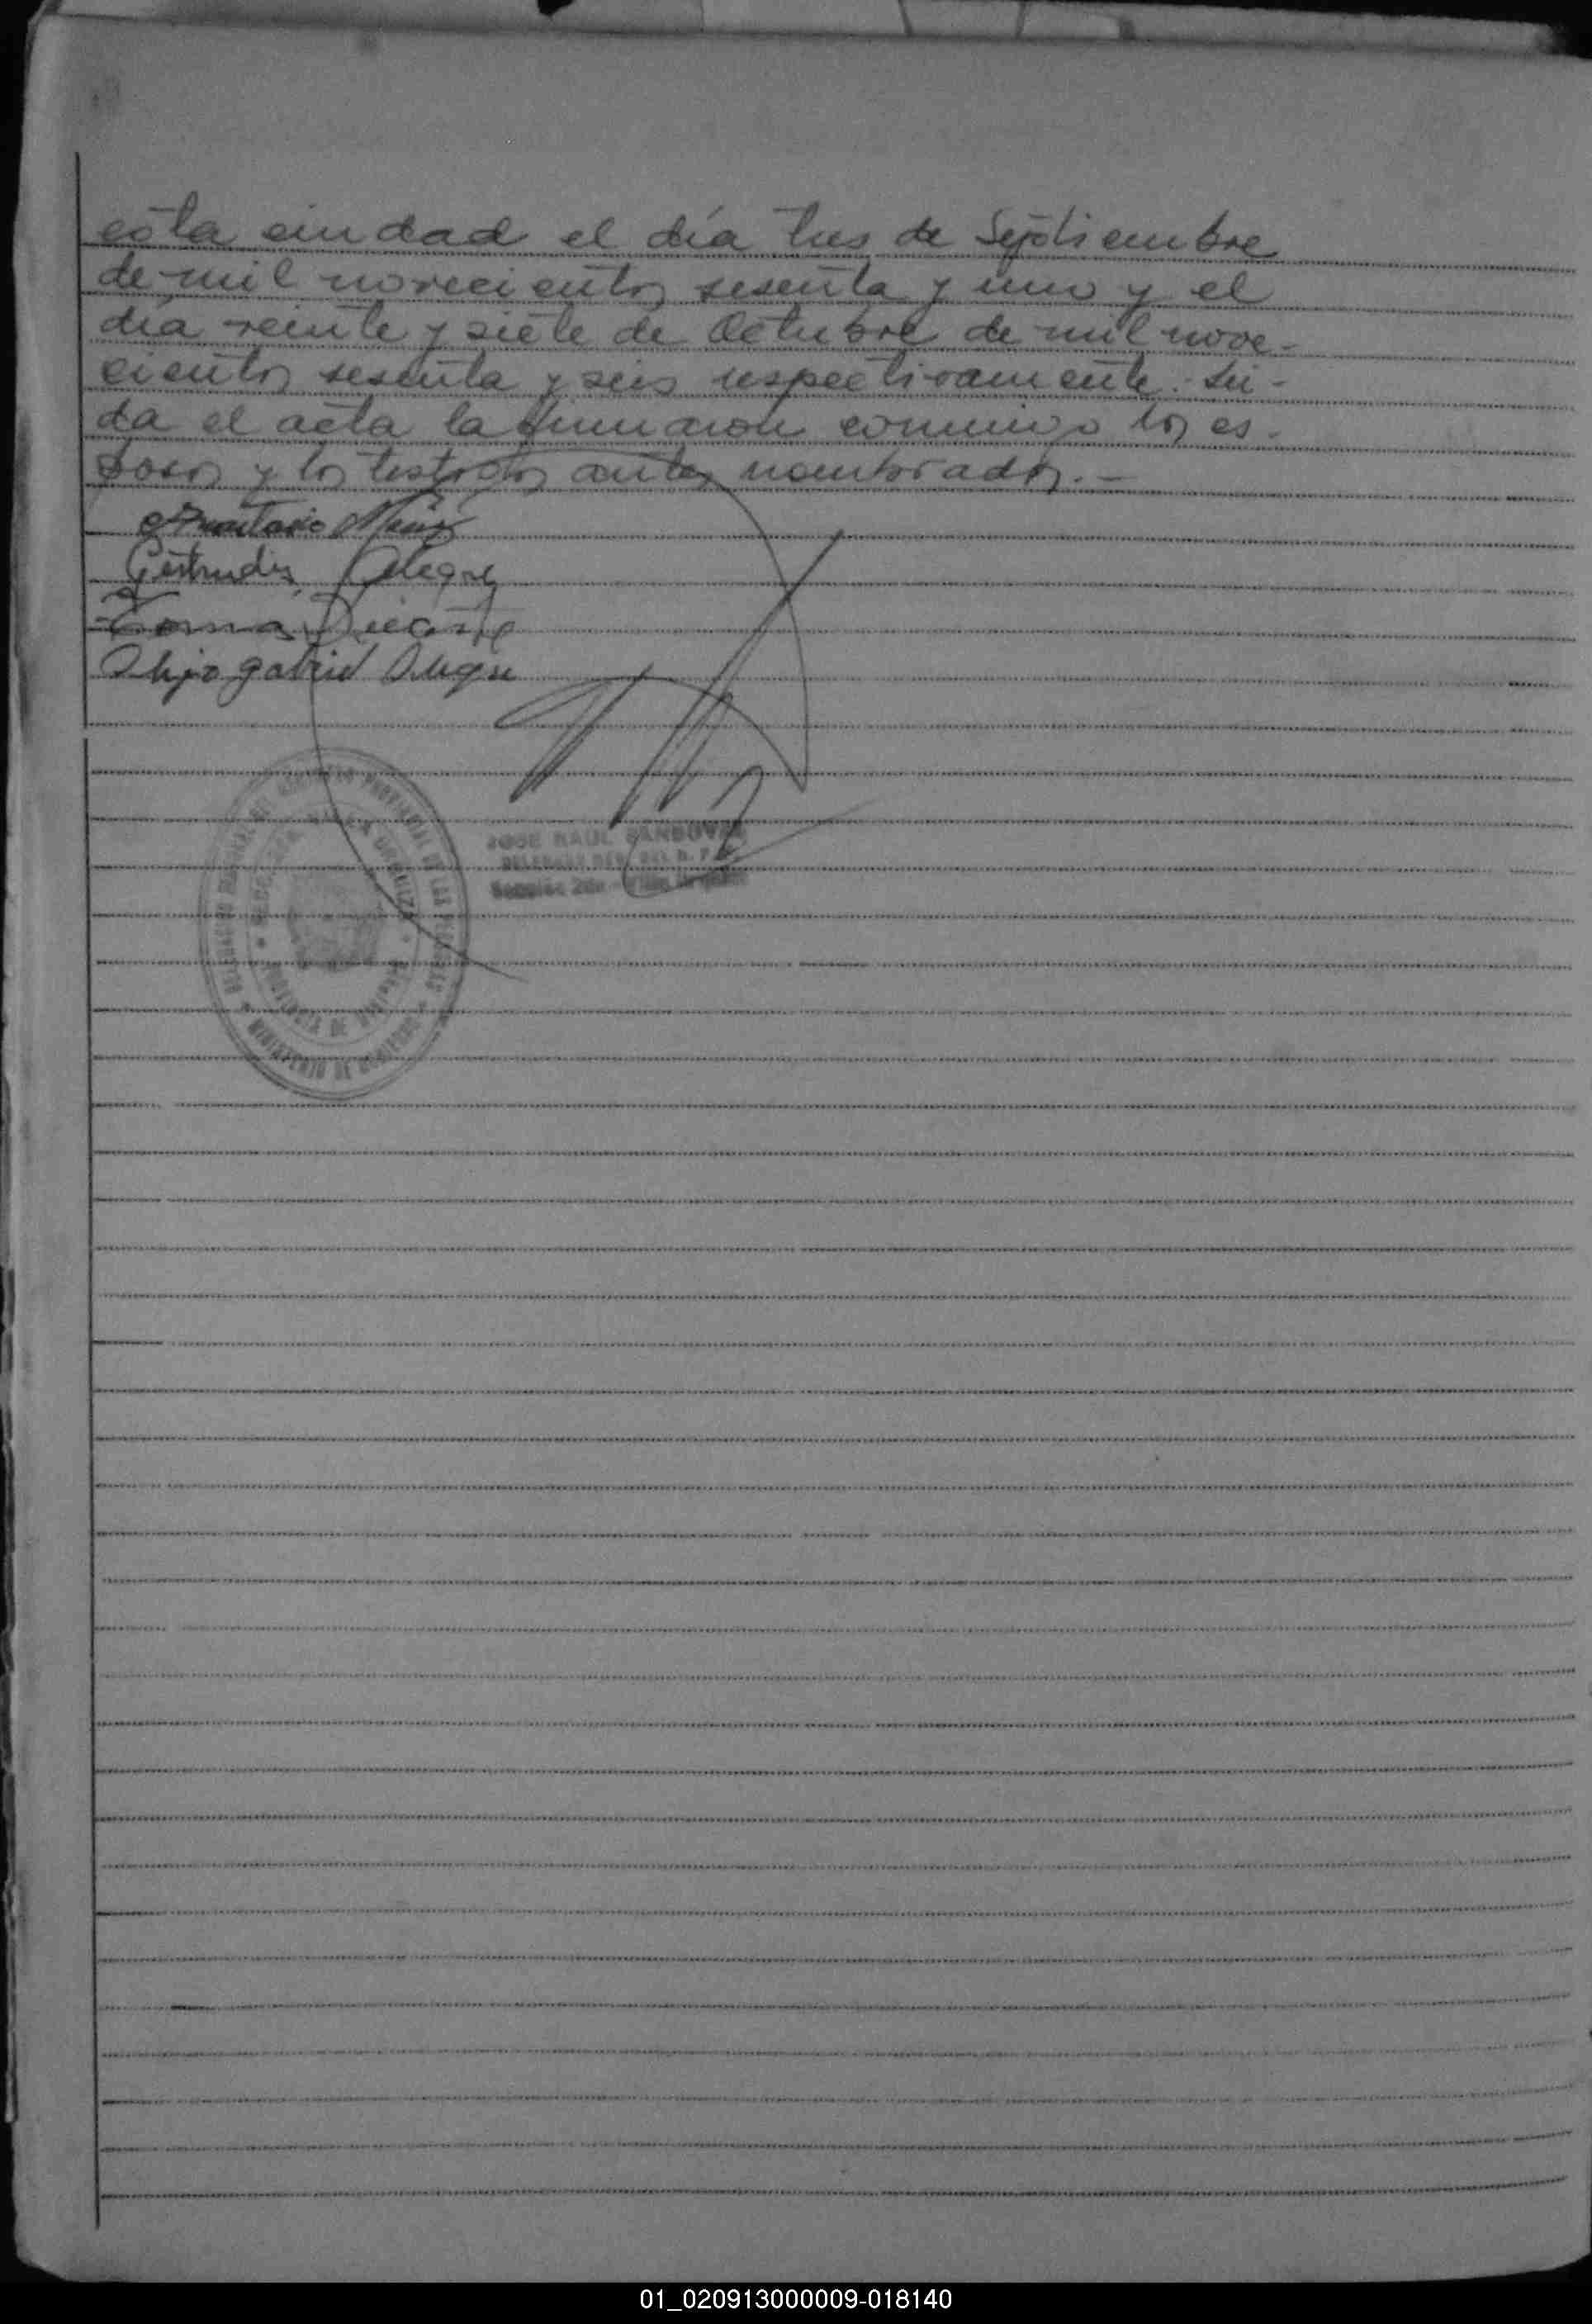 esta ciudad el día tres de Septiembre
de mil novecientos sesenta y uno y el
día veinte y siete de Octubre de mil nove-
cientos sesenta y seis respectivamente.- Leí-
da el acta la firmaron conmigo los es-
posos y los testigos antes nombrados.-
Gertrudis Alegre
gabriel Alegre
JOSE RAUL SANDOVAL
MINISTERIO DE GOBIERNO
01_020913000009-018140